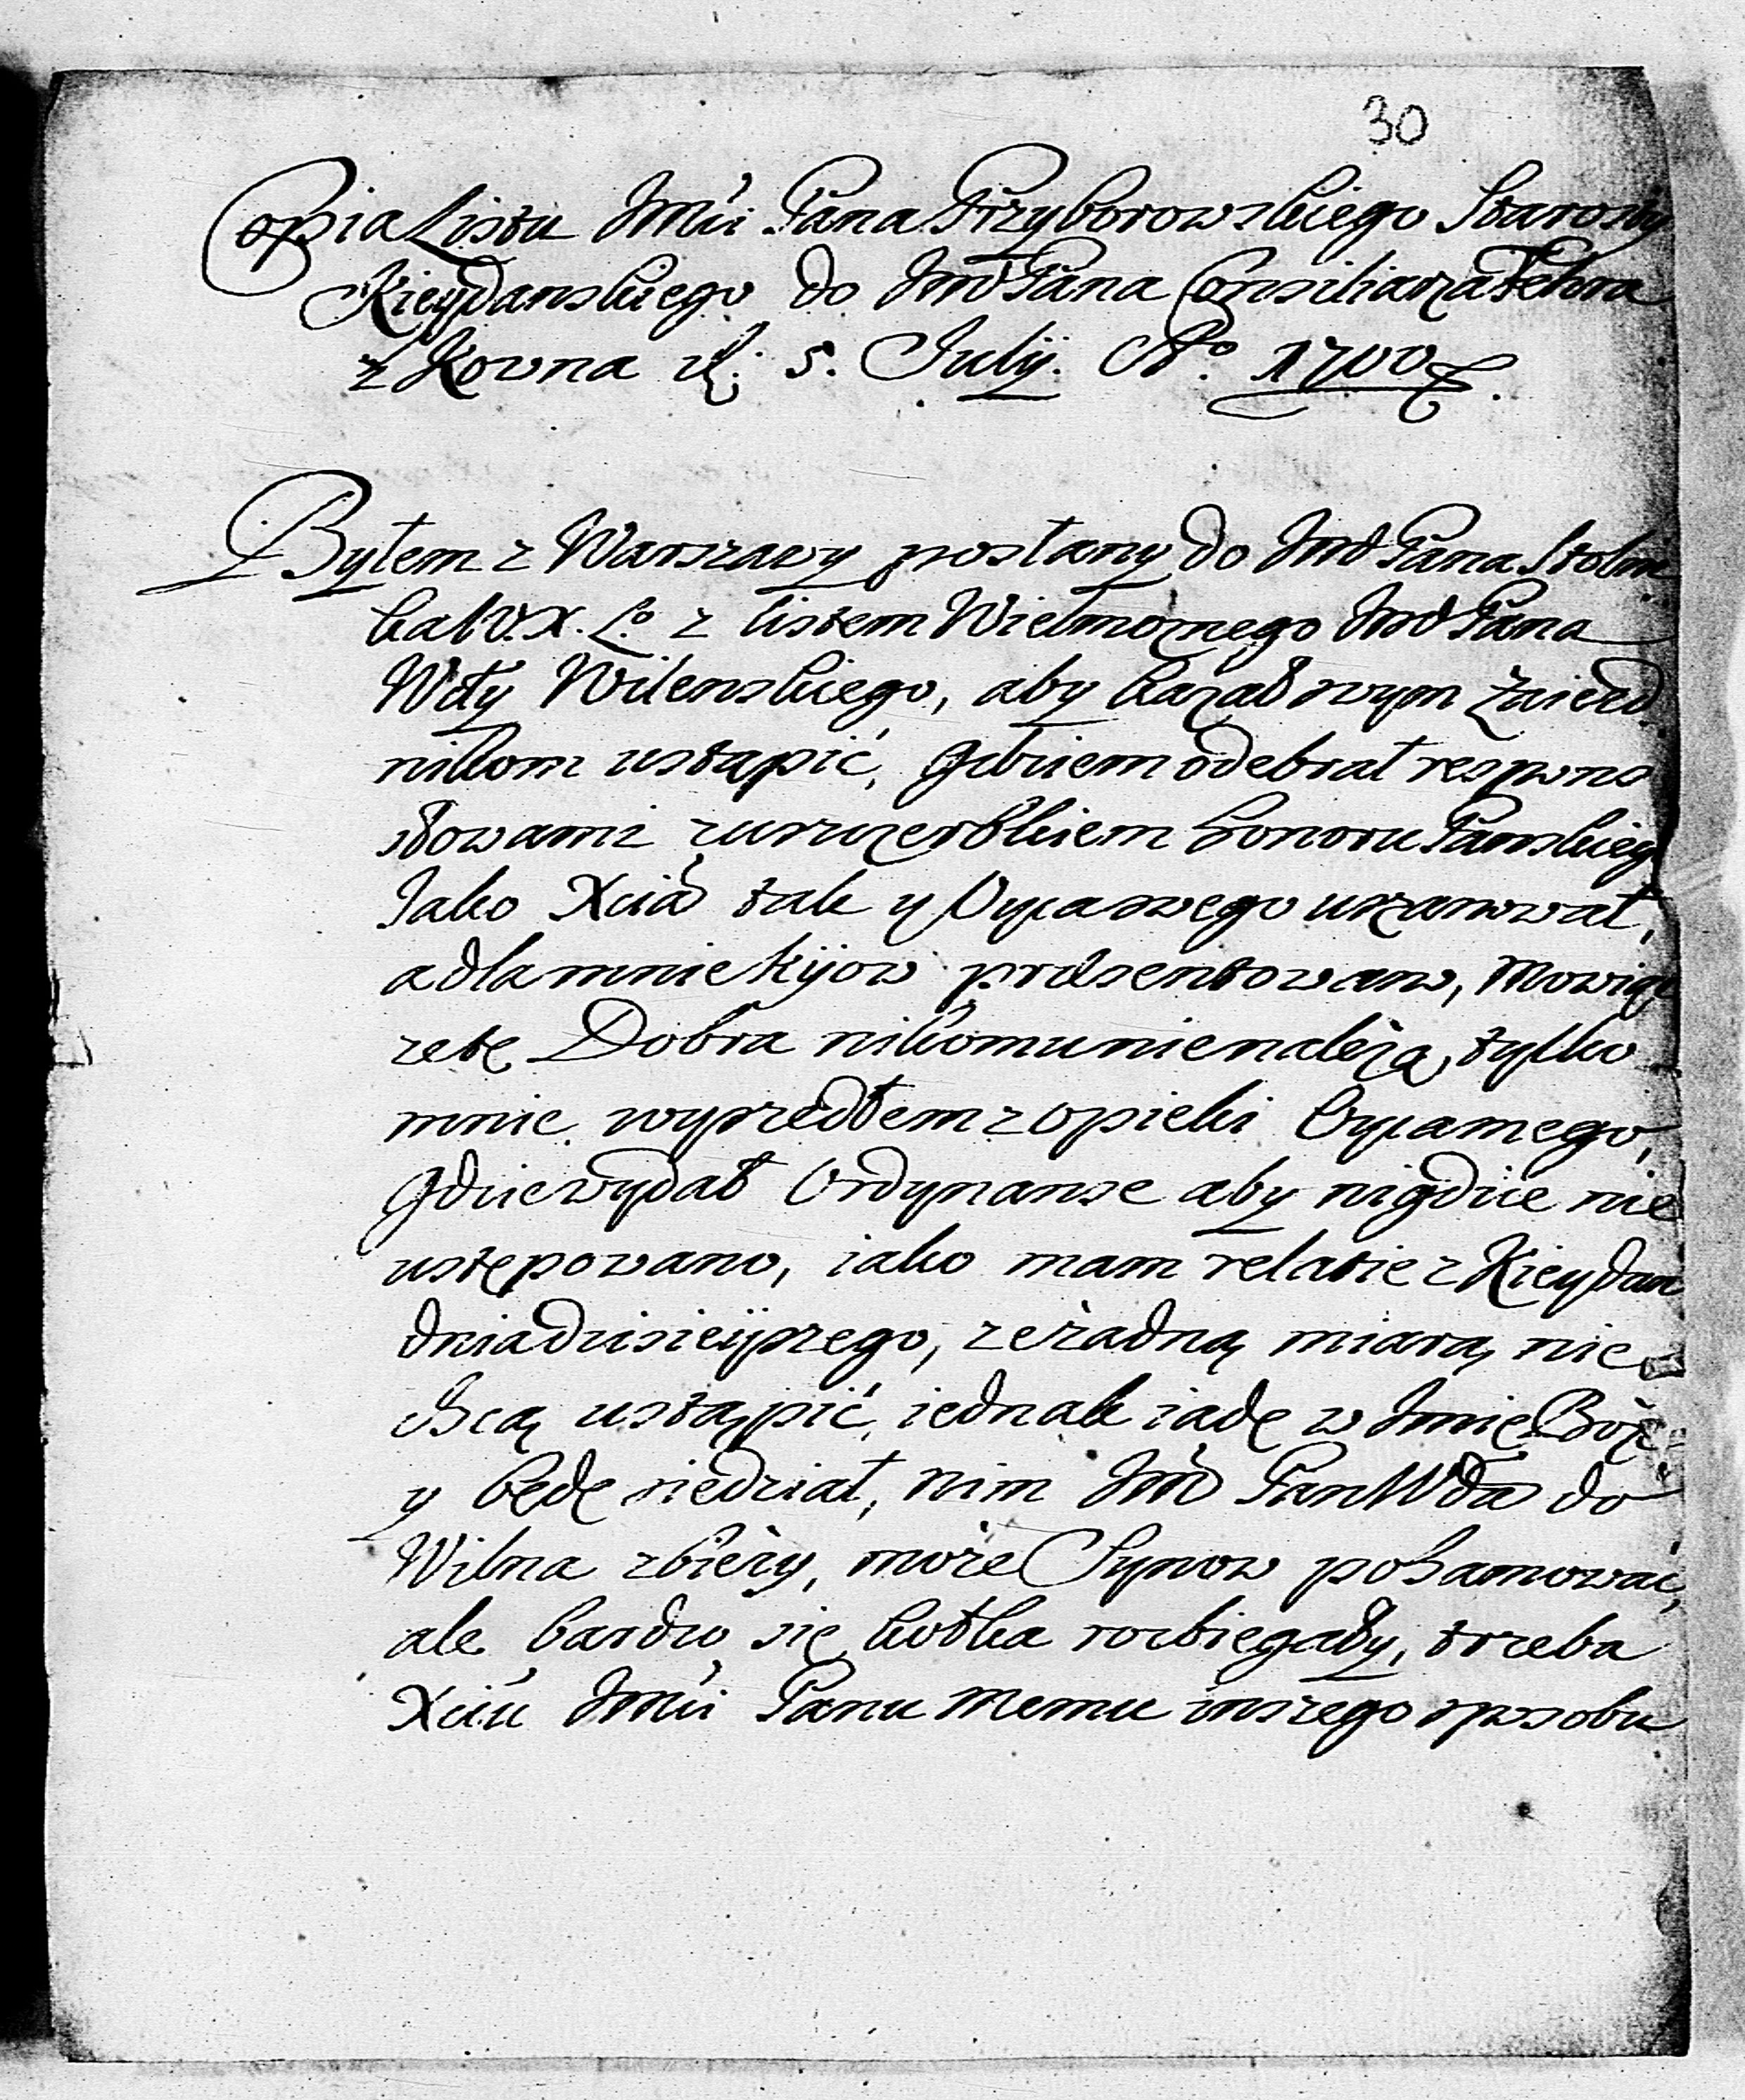 30
Copia Listu Jmći Pana Przyborowskiego Starosty
Kieydanskiego do Jmć Pana Consiliarza Fehra
z Kowna d. 5. Julij. Aº. 1700
Byłem z Warszawy posłany do Jmć Pana Stolni
ka W. X. Lº z listem Wielmoznego Jmć Pana
Wdy Wilenskiego, aby kazał swym Zwierd
nikom ustąpić, gdziem odebrał respons
słowami z uszczerbkiem honoru Panskieg
Jako Xcia tak y Oyca swego uszanował,
a dla mnie kijow prœsentowano, mowiąc
ze te Dobra nikomu nie nalezą, tylko
mnie wyszedłem z opieki Oyca mego,
gdzie wydał Ordynanse aby nigdzie nie
ustępowano, iako mam relatie z Kieydan
dnia dzisieyszego, ze żadną miarą nie
chcą ustąpić, iednak iadę w Jmię Boże
y będę siedział, nim Jmć Pan Wda do
Wilna zbieży, może Synow pohamować,
ale bardzo się kotka rozbiegały, trzeba
Xciu Jmći Panu memu inszego sposobu